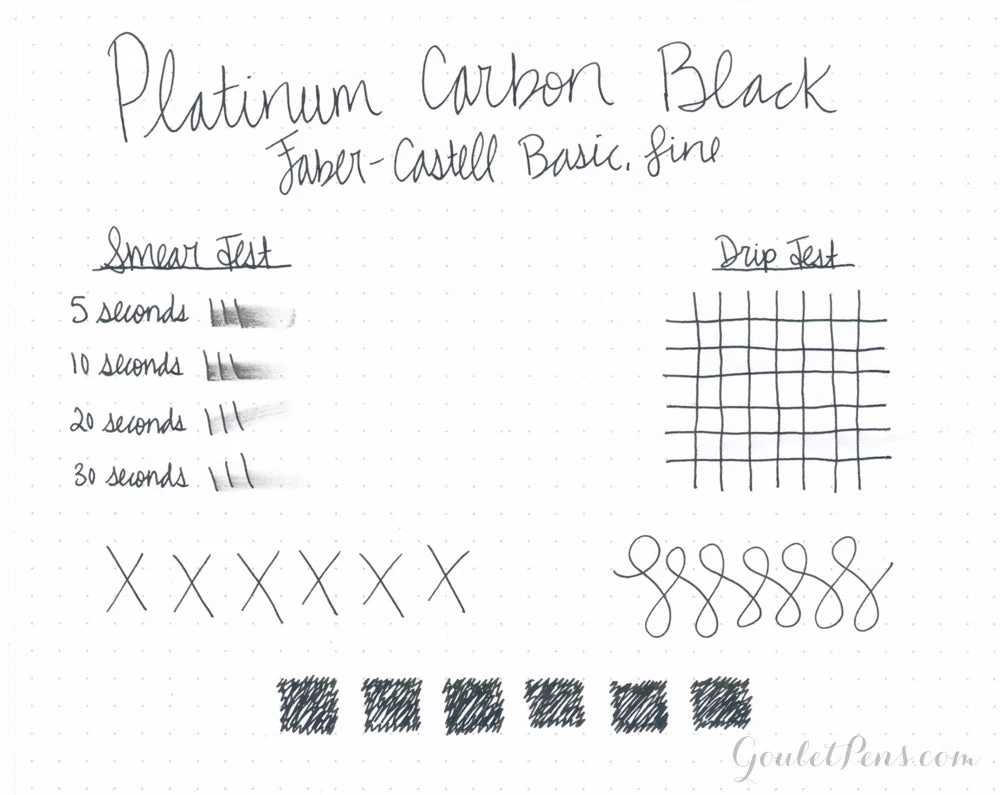 Platinum Carbon Black
Faber-Castell Basic, fine
Smear Test
Drip Test
5 seconds
10 seconds
20 seconds
30 seconds
GouletPens.com